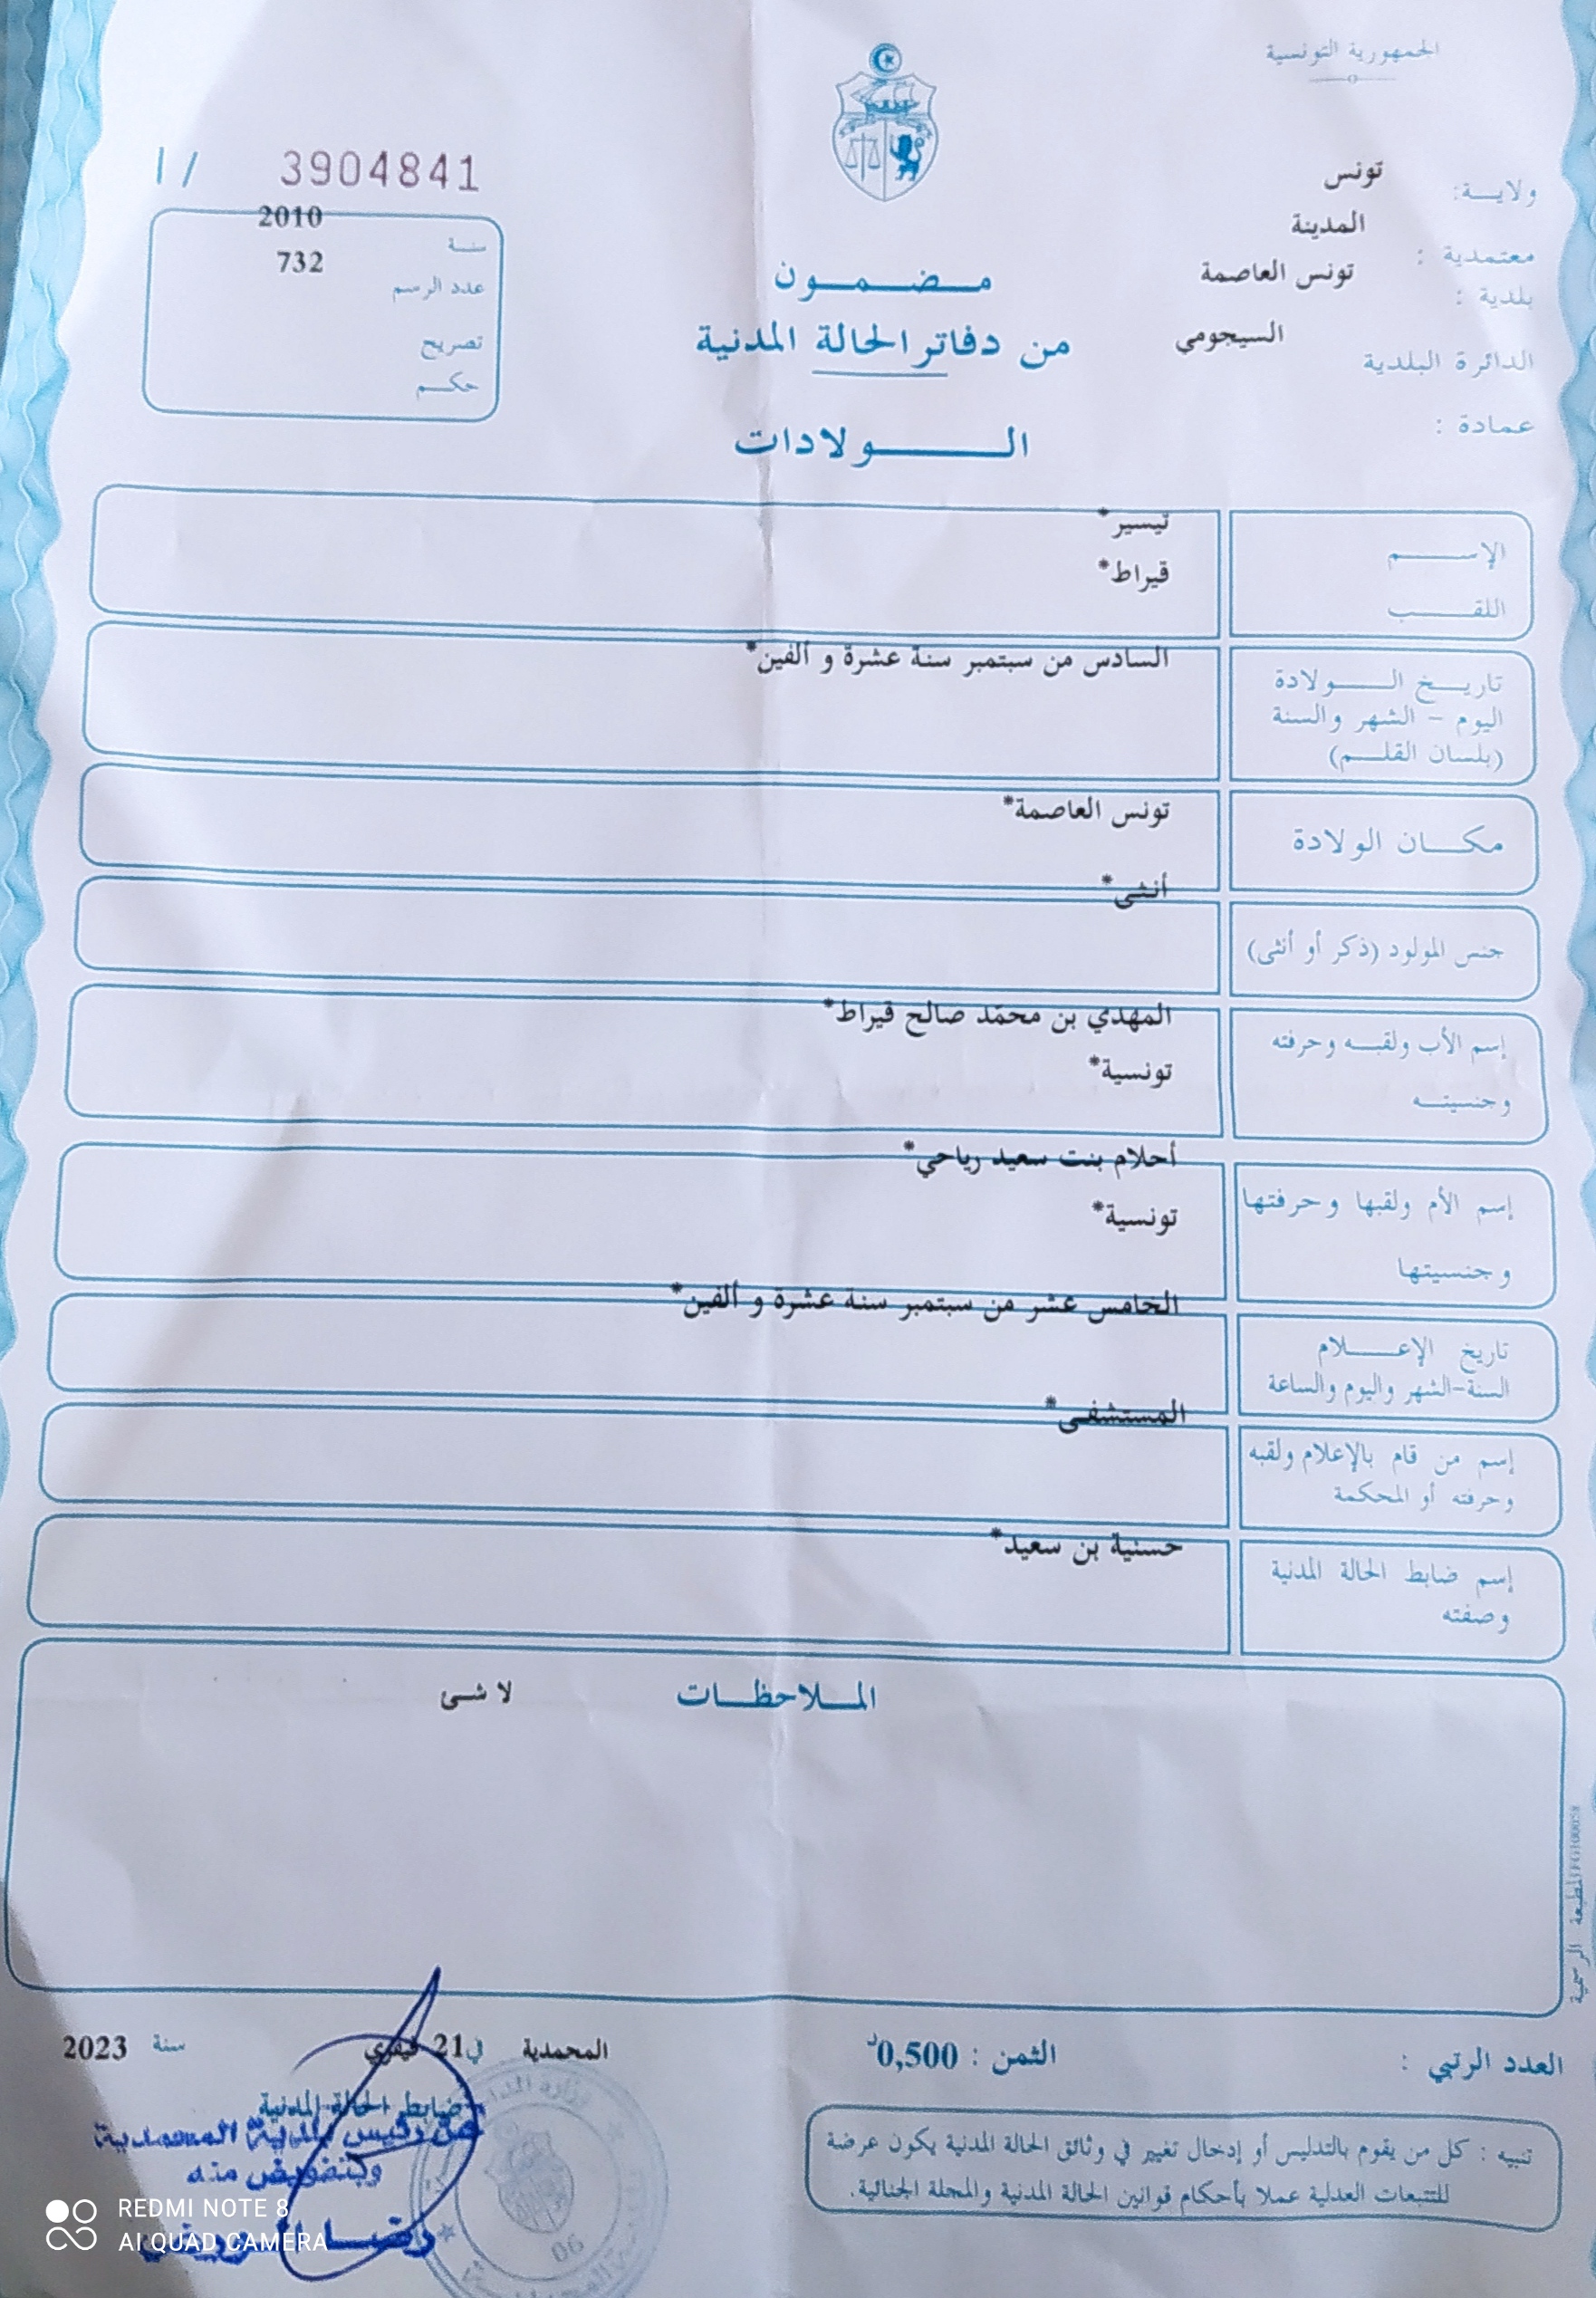 الجمهورية التونسية
ولايـــة: تونس
معتمدية : المدينة
بلدية : تونس العاصمة
الدائرة البلدية السيجومي
عمادة :
مــضــمــون
من دفاتر الحالة المدنية
الـــولادات
I / 3904841
سنـة 2010
عدد الرسم 732
تصريح
حكـــم
الإســـــم تيسير*
اللقـــــب قيراط*
تاريــخ الـــولادة السادس من سبتمبر سنة عشرة و ألفين*
اليوم – الشهر والسنة
(بلسان القلـــم)
مكـــان الولادة تونس العاصمة*
جنس المولود (ذكر أو أنثى) أنثى*
إسم الأب ولقبـــه وحرفته المهدي بن محمّد صالح قيراط*
وجنسيتـــه تونسية*
إسم الأم ولقبها وحرفتها أحلام بنت سعيد رياحي*
وجنسيتها تونسية*
تاريخ الإعـــلام الخامس عشر من سبتمبر سنة عشرة و ألفين*
السنة-الشهر واليوم والساعة
إسم من قام بالإعلام ولقبه المستشفى*
وحرفته أو المحكمة
إسم ضابط الحالة المدنية حسنية بن سعيد*
وصفته
الملاحظــات لا شـى
المطبعة الرسمية
العدد الرتبي :
الثمن : 0,500د
المحمدية في 21 فيفري سنة 2023
ضابط الحالة المدنية
عن رئيس بلدية المحمدية
وبتفويض منه
رضا
تنبيه : كل من يقوم بالتدليس أو إدخال تغيير في وثائق الحالة المدنية يكون عرضة
للتتبعات العدلية عملا بأحكام قوانين الحالة المدنية والمجلة الجنائية.
06
REDMI NOTE 8
AI QUAD CAMERA